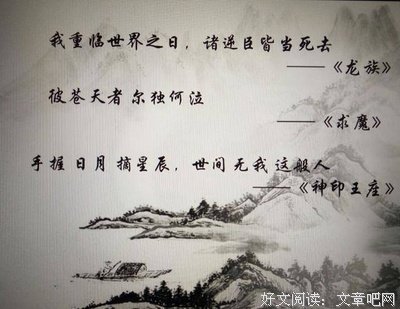 我重临世界之日，诸逆臣皆当死去
——《龙族》
彼苍天者尔独何泣
——《求魔》
手握日月摘星辰，世间无我这般人
——《神印王座》
好文阅读：文章吧网